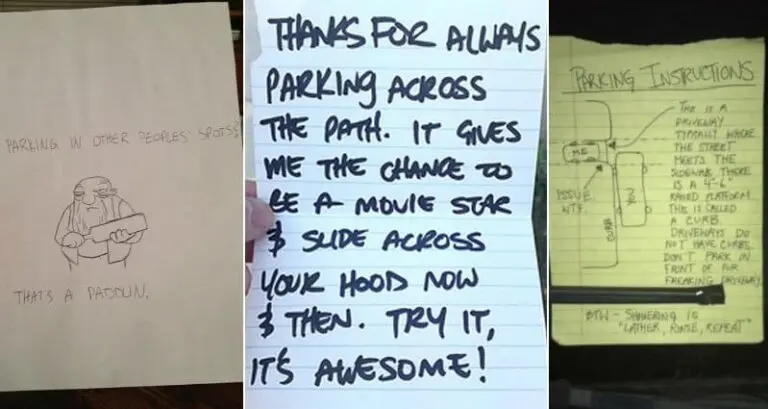 PARKING IN OTHER PEOPLES' SPOTS?
THAT'S A PADDLIN.
THANKS FOR ALWAYS
PARKING ACROSS
THE PATH. IT GIVES
ME THE CHANCE TO
BE A MOVIE STAR
& SLIDE ACROSS
YOUR HOOD NOW
& THEN. TRY IT,
IT'S AWESOME!
PARKING INSTRUCTIONS
THIS IS A
DRIVEWAY
TYPICALLY WHERE
THE STREET
MEETS THE
SIDEWALK THERE
IS A 4"-6"
RAISED PLATFORM.
THIS IS CALLED
A CURB.
DRIVEWAYS DO
NOT HAVE CURBS.
DON'T PARK IN
FRONT OF OUR
FREAKING DRIVEWAY
ME
ISSUE
WTF
YOU
CURB
BTW - SHOWERING IS
"LATHER, RINSE, REPEAT"